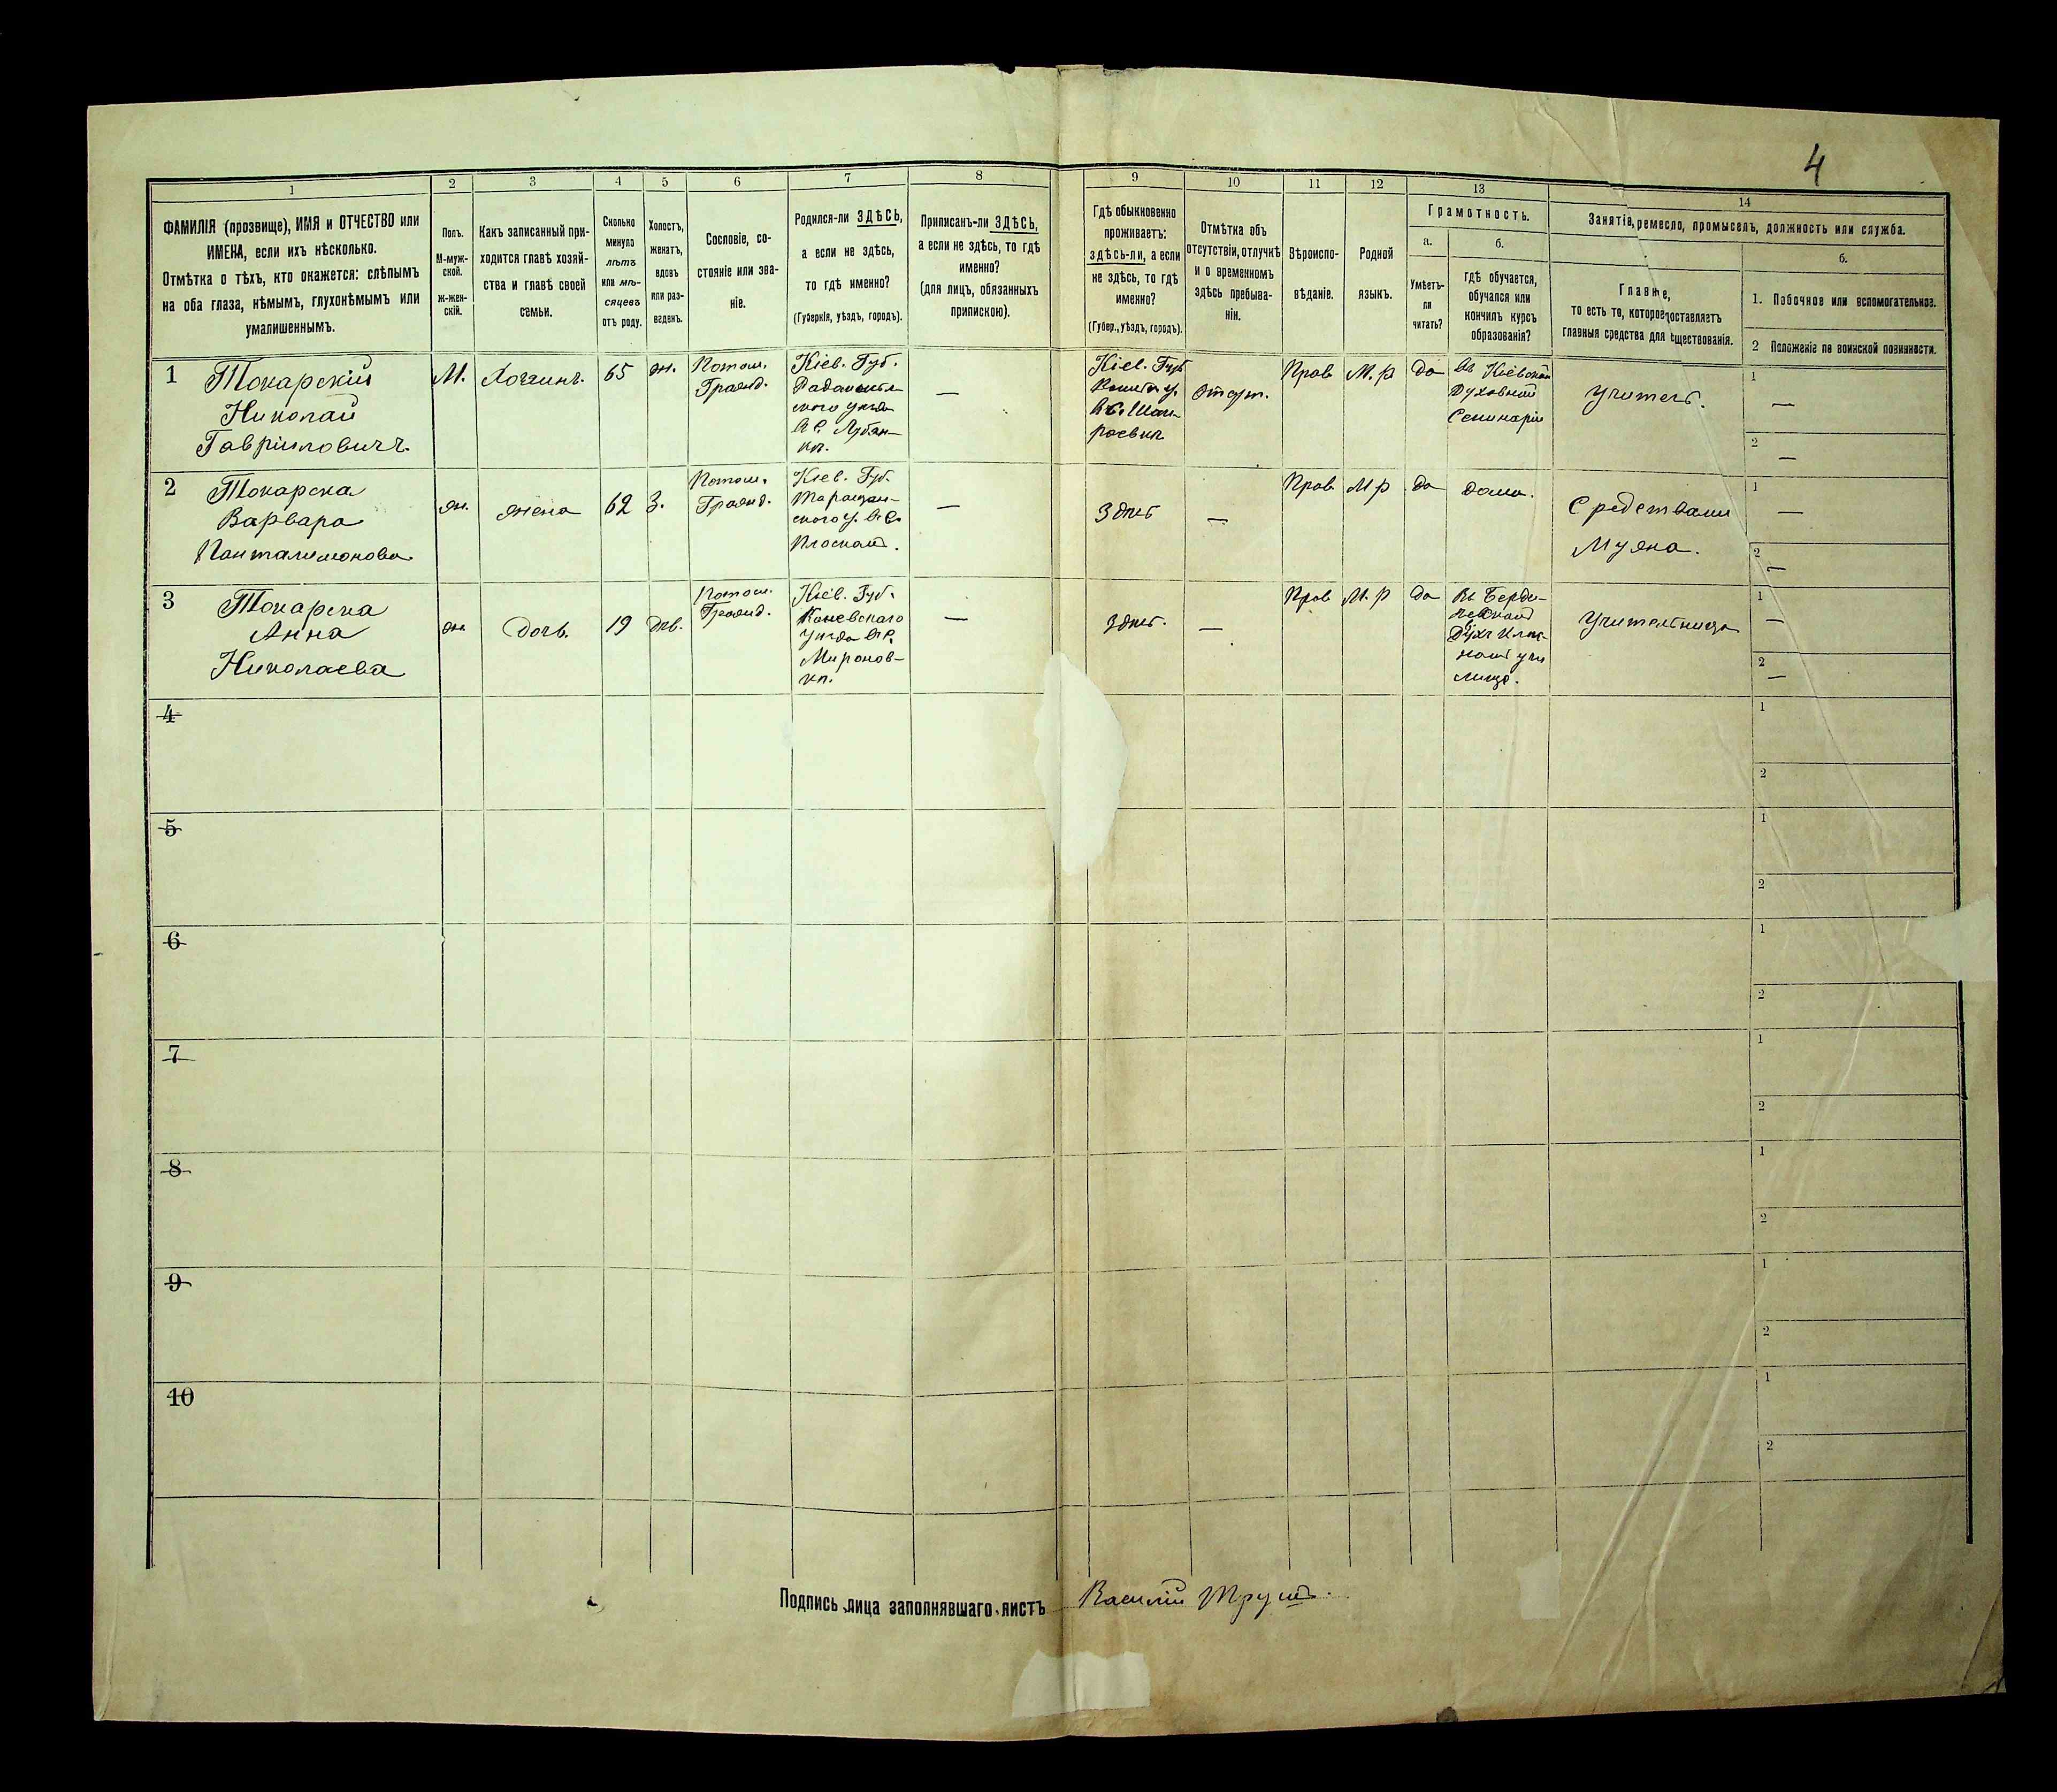 4
1
2
3
4
5
6
7
8
9
10
11
12
13
14
ФАМИЛІЯ (прозвище), ИМЯ и ОТЧЕСТВО или
ИМЕНА, если ихъ нѣсколько.
Отмѣтка о тѣхъ, кто окажется: слѣпымъ
на оба глаза, нѣмымъ, глухонѣмымъ или
умалишеннымъ.
Полъ.
М-муж-
ской.
ж-жен-
скій.
Какъ записанный при-
ходится главѣ хозяй-
ства и главѣ своей
семьи.
Сколько
минуло
лѣтъ
или мѣ-
сяцевъ
отъ роду.
Холостъ,
женатъ,
вдовъ
или раз-
веденъ.
Сословіе, со-
стояніе или зва-
ніе.
Родился-ли ЗДѢСЬ,
а если не здѣсь,
то гдѣ именно?
(Губернія, уѣздъ, городъ).
Приписанъ-ли ЗДѢСЬ,
а если не здѣсь, то гдѣ
именно?
(для лицъ, обязанныхъ
припискою).
Гдѣ обыкновенно
проживаетъ:
здѣсь-ли, а если
не здѣсь, то гдѣ
именно?
(Губер., уѣздъ, городъ).
Отмѣтка объ
отсутствіи, отлучкѣ
и о временномъ
здѣсь пребыва-
ніи.
Вѣроиспо-
вѣданіе.
Родной
языкъ.
Грамотность.
а.
Умѣетъ-
ли
читать?
б.
гдѣ обучается,
обучался или
кончилъ курсъ
образованія?
Занятіе, ремесло, промыселъ, должность или служба.
Главное,
то есть то, которое доставляетъ
главныя средства для существованія.
б.
1. Побочное или вспомогательное.
2 Положеніе по воинской повинности.
1
Токарскій
Николай
Гавріиловичъ.
М.
Хозяинъ.
65
жн.
Потом.
Гражд.
Кіев. Губ.
—
Кіев. Губ
Отсут.
Прав
М. р
да
въ Кіевской
Духовной
Семинаріи
Учитель.
1
—
2
—
2
Токарска
Варвара
Панталимонова
жн.
жена
62
З.
Потом.
Гражд.
Кіев. Губ.
Таращан-
ского у. в с.
Плоской.
—
Здѣсь
—
Прав
М р
да
дома.
Средствами
Мужа.
1
—
2
—
3
Токарска
Анна
Николаева
жн
дочь.
19
дѣв.
Потом.
Гражд.
Кіев. Губ.
Каневского
уѣзда в с.
Миронов-
кѣ.
—
Здѣсь.
—
Прав
М. р
да
Учительница
1
—
2
—
4
1
2
5
1
2
6
1
2
7
1
2
8
1
2
9
1
2
10
1
2
Подпись лица заполнявшаго листъ Василій